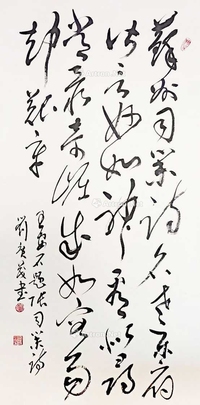 蘇州司業詩名老樂府
皆言妙如神看似尋
常最奇崛成如容易
却艱辛
王安石題張司業詩
劉 茂書